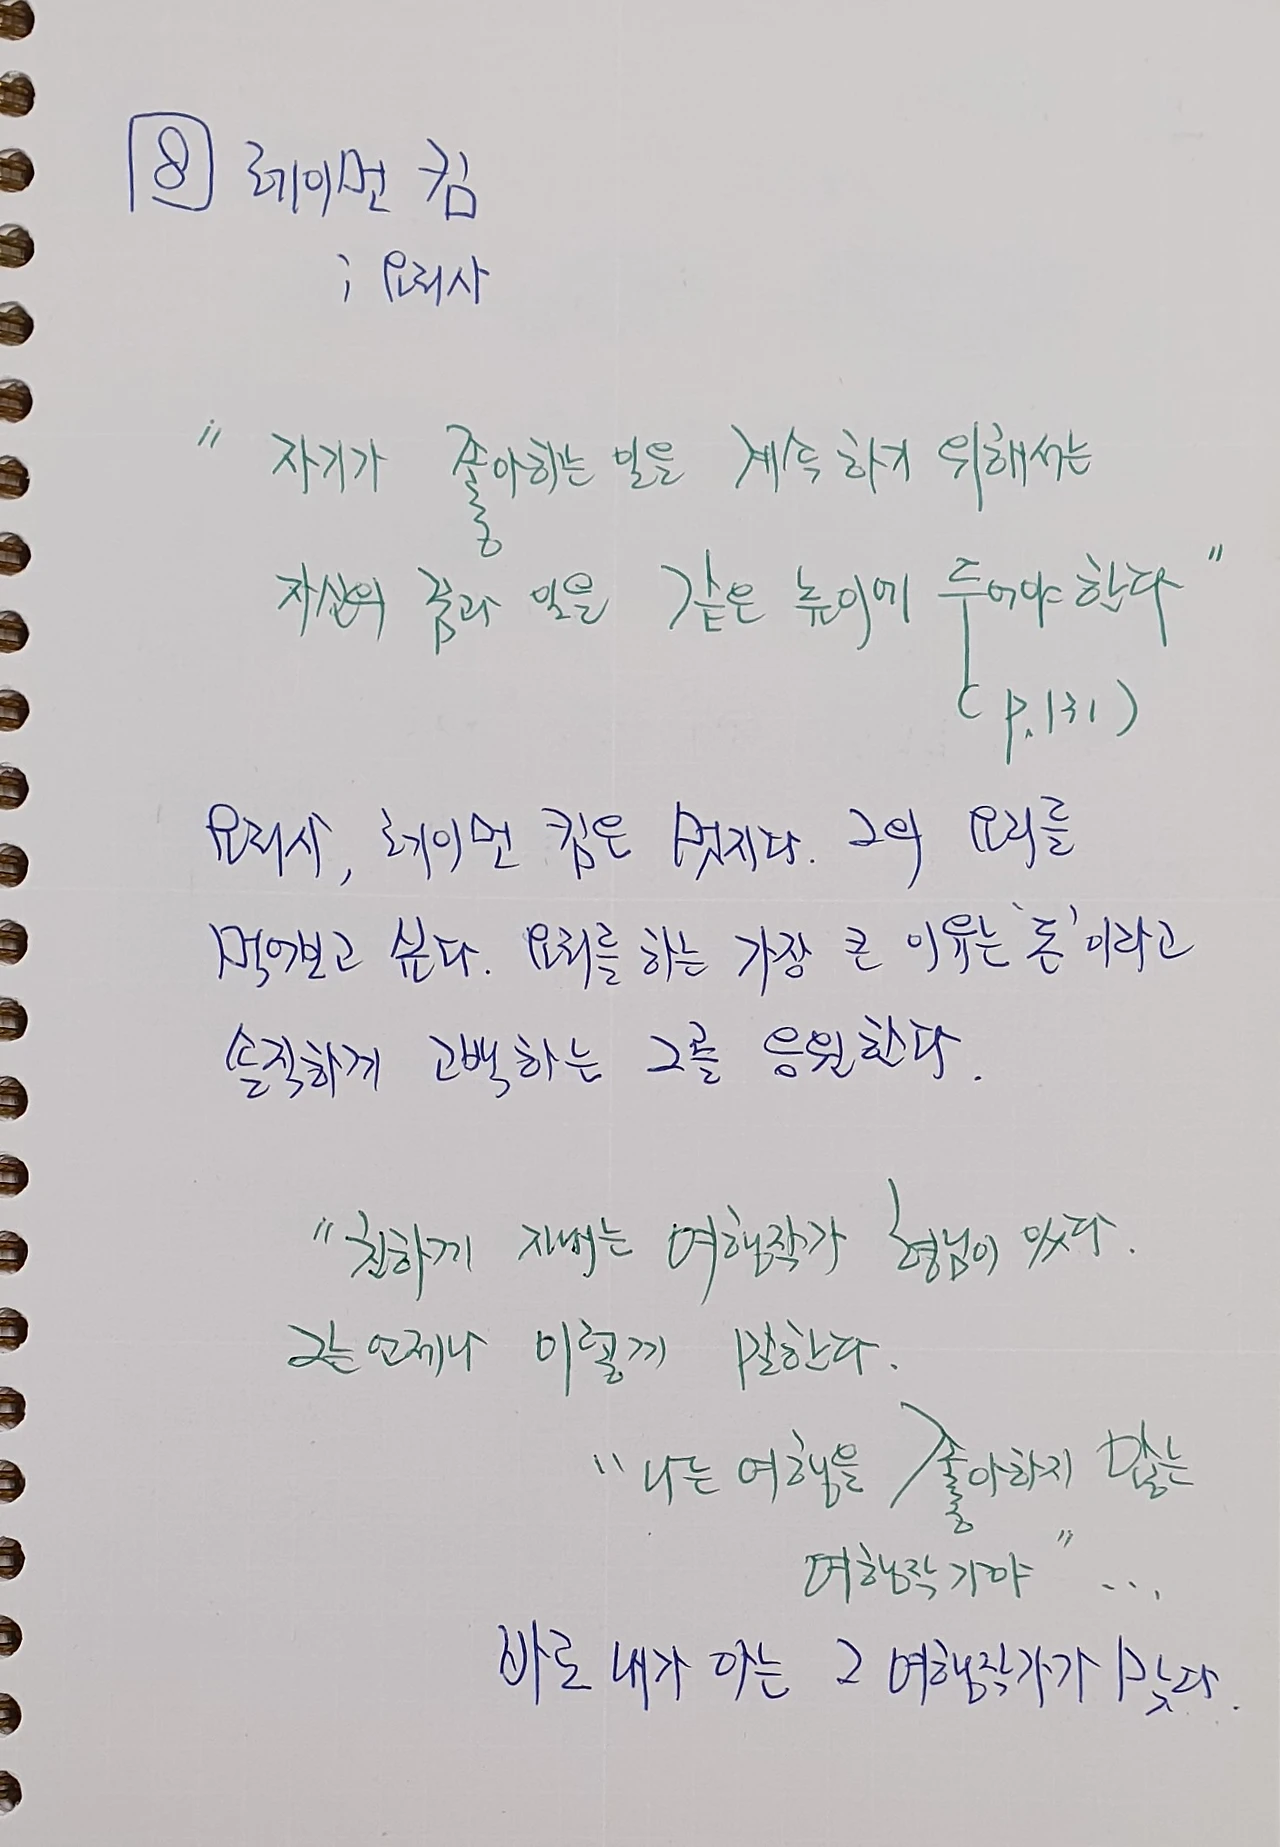 8 레이먼 킴
; 요리사
" 자기가 좋아하는 일을 계속 하기 위해서는
자신의 꿈과 일을 같은 높이에 두어야 한다 "
(p.131)
요리사, 레이먼 킴은 멋지다. 그의 요리를
먹어보고 싶다. 요리를 하는 가장 큰 이유는 '돈'이라고
솔직하게 고백하는 그를 응원한다.
"친하게 지내는 여행작가 형님이 있다.
그는 언제나 이렇게 말한다.
"나는 여행을 좋아하지 않는
여행작가야" ...
바로 내가 아는 그 여행작가가 맞다.